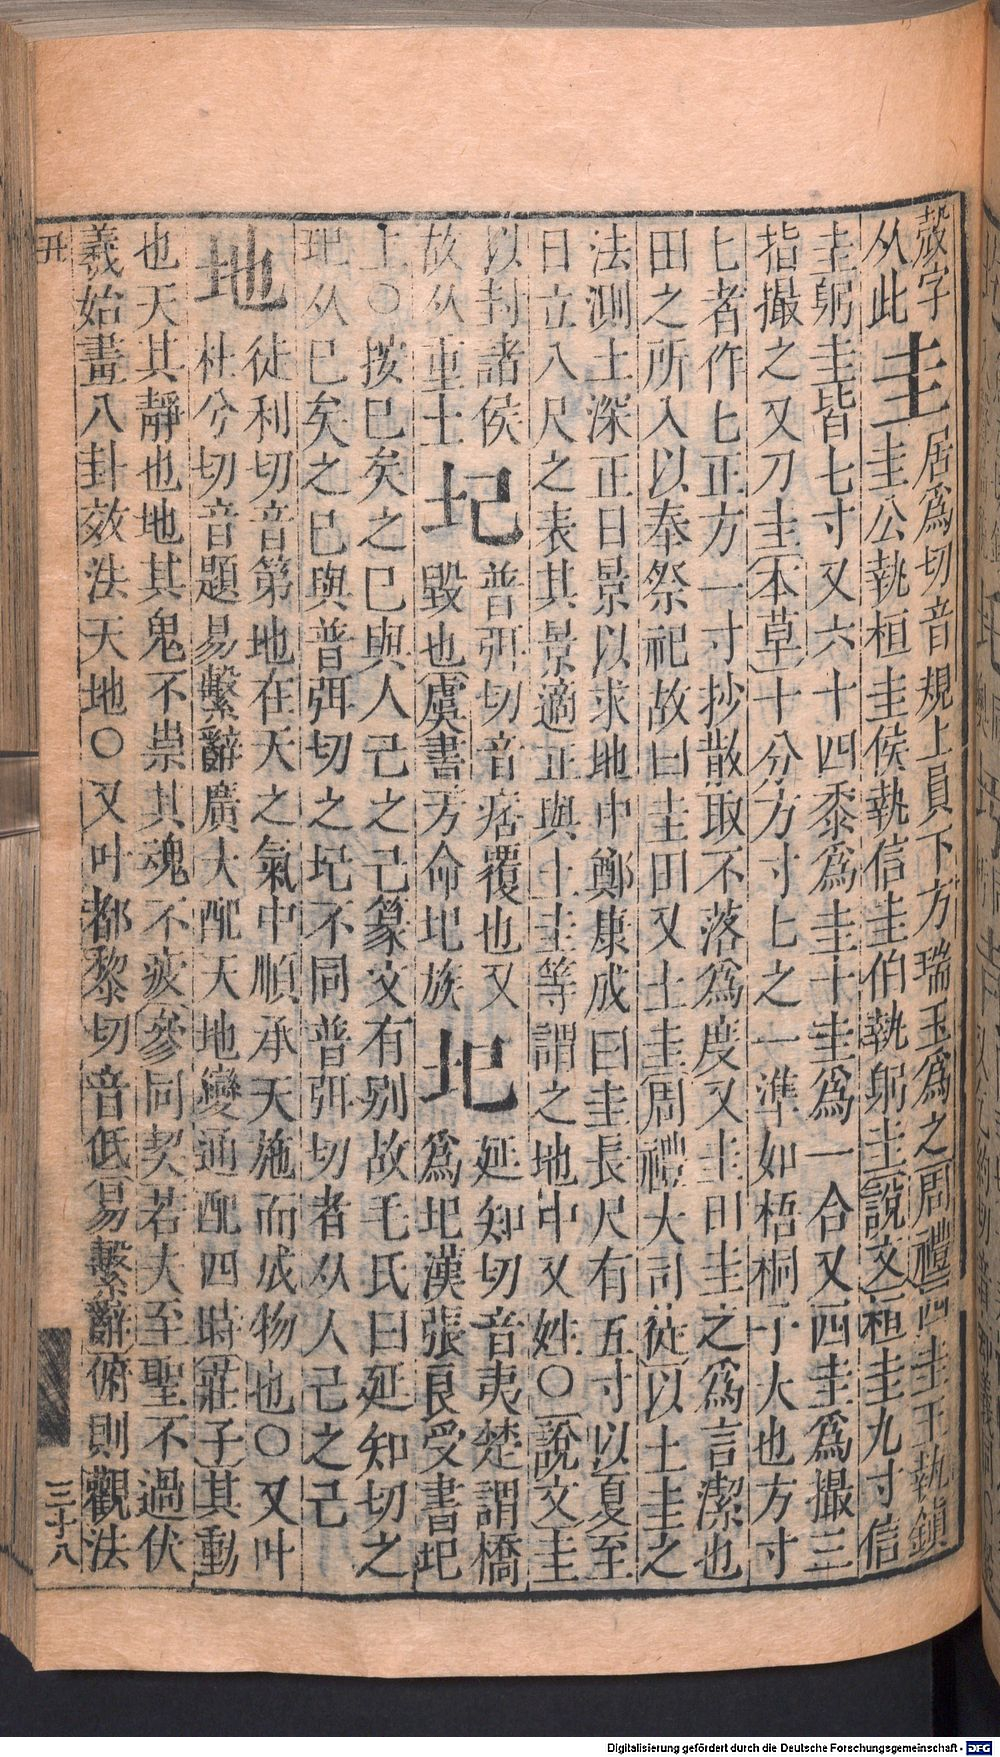 㱿字
从此
圭
居爲切音規上員下方瑞玉爲之周禮四圭王執鎮
圭公執桓圭侯執信圭伯執躬圭說文桓圭九寸信
圭躬圭皆七寸又六十四黍爲圭十圭爲一合又四圭爲撮三
指撮之又刀圭本草十分方寸匕之一準如梧桐子大也方寸
匕者作匕正方一寸抄散取不落爲度又圭田圭之爲言潔也
田之所入以奉祭祀故曰圭田又土圭周禮大司徒以土圭之
法測土深正日景以求地中鄭康成曰圭長尺有五寸以夏至
日立八尺之表其景適正與土圭等謂之地中又姓○說文圭
以封諸侯
故从重土
圮
普弭切音痞覆也又
毀也虞書方命圮族
圯
延知切音夷楚謂橋
爲圯漢張良受書圯
上○按巳矣之巳與人己之己篆文有別故毛氏曰延知切之
圯从巳矣之巳與普弭切之圮不同普弭切者从人己之己
地
徒利切音第地在天之氣中順承天施而成物也○又叶
杜兮切音題易繫辭廣大配天地變通配四時莊子其動
也天其靜也地其鬼不祟其魂不疲參同契若夫至聖不過伏
羲始畫八卦效法天地○又叶都黎切音低易繫辭俯則觀法
三十八
Digitalisierung gefördert durch die Deutsche Forschungsgemeinschaft - DFG